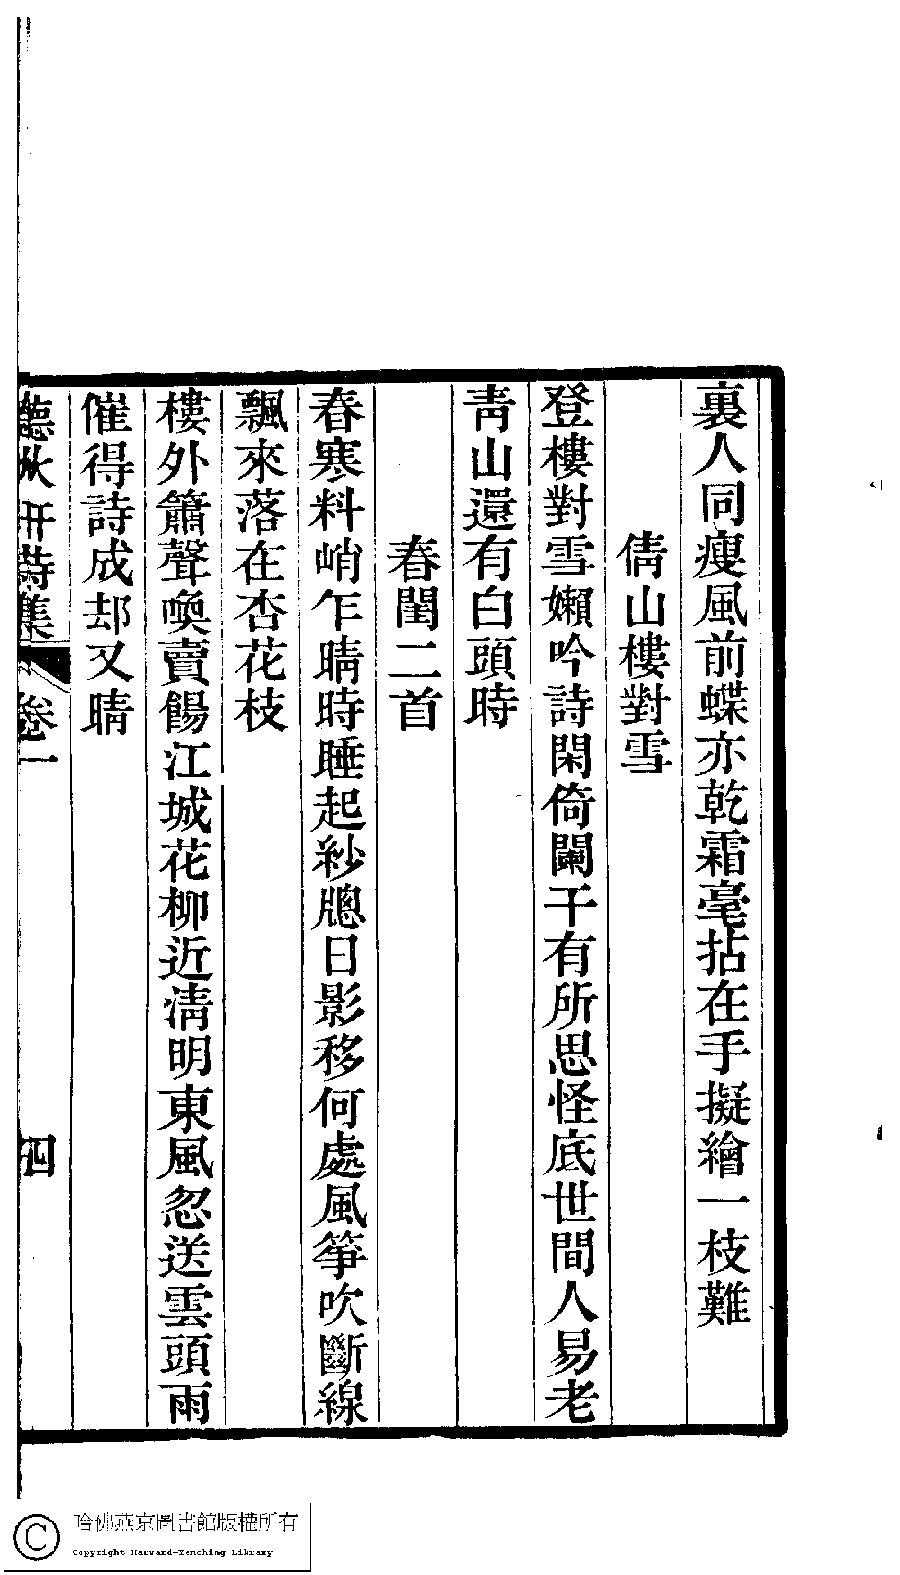 裏人同瘦風前蝶亦乾霜毫拈在手擬繪一枝難
倩山樓對雪
登樓對雪嬾吟詩閑倚闌干有所思怪底世間人易老
靑山還有白頭時
春閨二首
春寒料峭乍晴時睡起紗牕日影移何處風箏吹斷線
飄來落在杏花枝
樓外簫聲喚賣餳江城花柳近淸明東風忽送雲頭雨
催得詩成却又晴
聽秋軒詩集 卷一 四
哈佛燕京圖書館版權所有
Copyright Harvard-Yenching Library